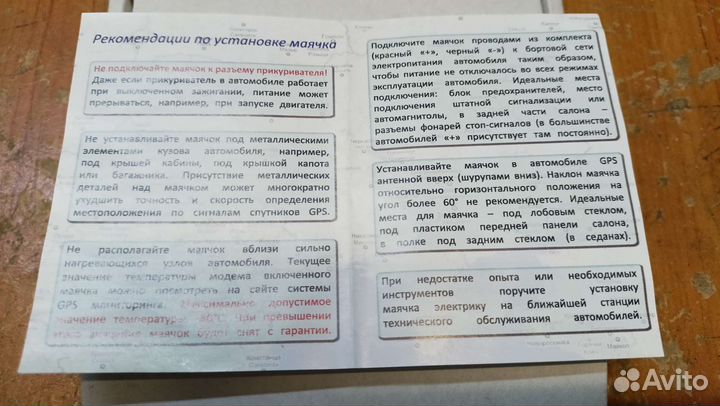 Рекомендации по установке маячка
Не подключайте маячок к разъему прикуривателя!
Даже если прикуриватель в автомобиле работает
при выключенном зажигании, питание может
прерываться, например, при запуске двигателя.
Не устанавливайте маячок под металлическими
элементами кузова автомобиля, например,
под крышей кабины, под крышкой капота
или багажника. Присутствие металлических
деталей над маячком может многократно
ухудшить точность и скорость определения
местоположения по сигналам спутников GPS.
Не располагайте маячок вблизи сильно
нагревающихся узлов автомобиля. Текущее
значение температуры модема включенного
маячка можно посмотреть на сайте системы
GPS мониторинга. Максимально допустимое
значение температуры 80°C. При превышении
этого значения маячок будет снят с гарантии.
Подключите маячок проводами из комплекта
(красный «+», черный «-») к бортовой сети
электропитания автомобиля таким образом,
чтобы питание не отключалось во всех режимах
эксплуатации автомобиля. Идеальные места
подключения: блок предохранителей, место
подключения штатной сигнализации или
автомагнитолы, в задней части салона –
разъемы фонарей стоп-сигналов (в большинстве
автомобилей «+» присутствует там постоянно).
Устанавливайте маячок в автомобиле GPS
антенной вверх (шурупами вниз). Наклон маячка
относительно горизонтального положения на
угол более 60° не рекомендуется. Идеальные
места для маячка – под лобовым стеклом,
под пластиком передней панели салона,
в полке под задним стеклом (в седанах).
При недостатке опыта или необходимых
инструментов поручите установку
маячка электрику на ближайшей станции
технического обслуживания автомобилей.
Avito